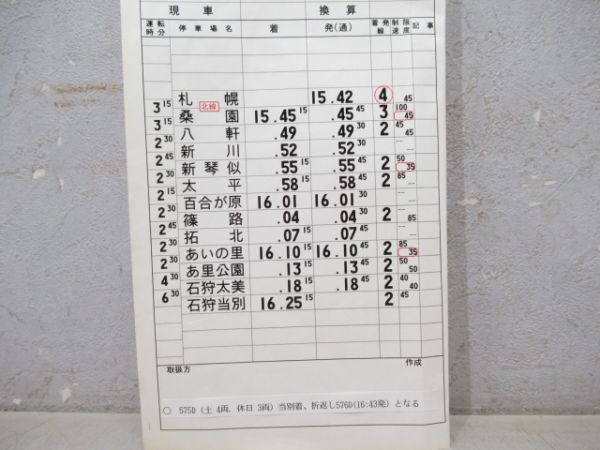 現車 換算
運転時分 停車場名 着 発(通) 着発線 制限速度 記事
札幌 15.42 4 45
3 15 北線
桑園 15.45 15 .45 45 3 100 45
3 15
八軒 .49 .49 30 2 45 45
2 30
新川 .52 .52 30
2 45
新琴似 .55 15 .55 45 2 50 35
2 30
太平 .58 15 .58 45 2 85
2 15
百合が原 16.01 16.01 30
2 30
篠路 .04 .04 30 2 85
2 45
拓北 .07 15 .07 45
2 30
あいの里 16.10 15 16.10 45 2 85 35
2 30
あ里公園 .13 15 .13 45 2 50 50
4 30
石狩太美 .18 15 .18 45 2 40 40
6 30
石狩当別 16.25 15 2 45
取扱方 作成
○ 575D (土 4両、休日 3両) 当別着、折返し576D(16:43発) となる